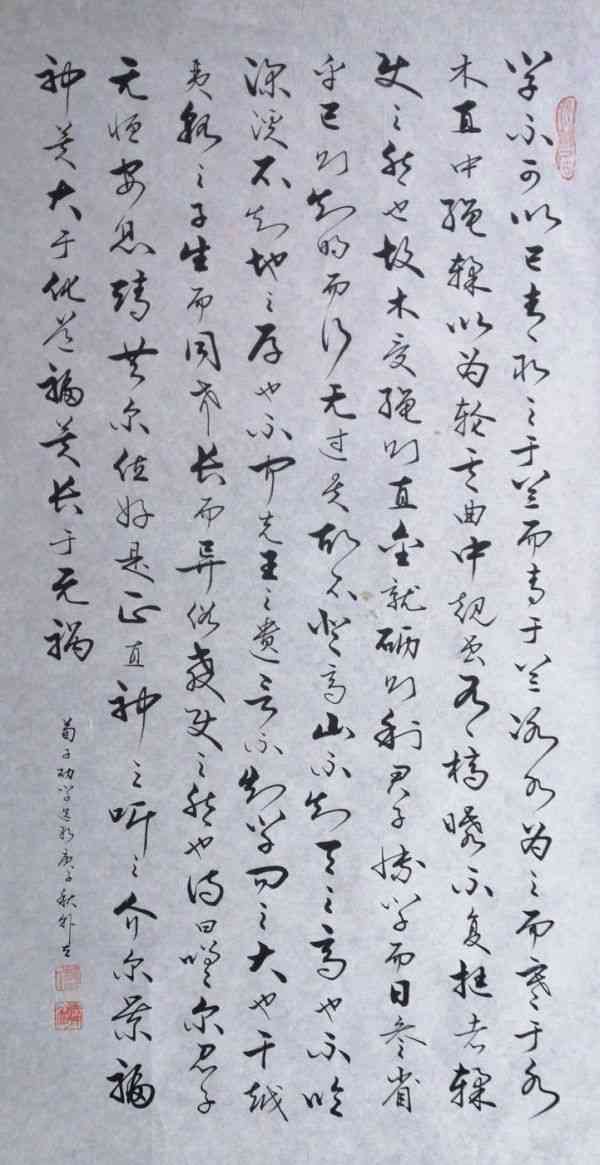 学不可以已青取之于兰而青于兰冰水为之而寒于水
木直中绳輮以为轮其曲中规虽有槁曝不复挺者輮
使之然也故木受绳则直金就砺则利君子博学而日参省
乎己则知明而行无过矣故不登高山不知天之高也不临
深溪不知地之厚也不闻先王之遗言不知学问之大也干越
夷貉之子生而同声长而异俗教使之然也诗曰嗟尔君子
无恒安息靖共尔位好是正直神之听之介尔景福
神莫大于化道福莫长于无祸
荀子劝学选段庚子秋